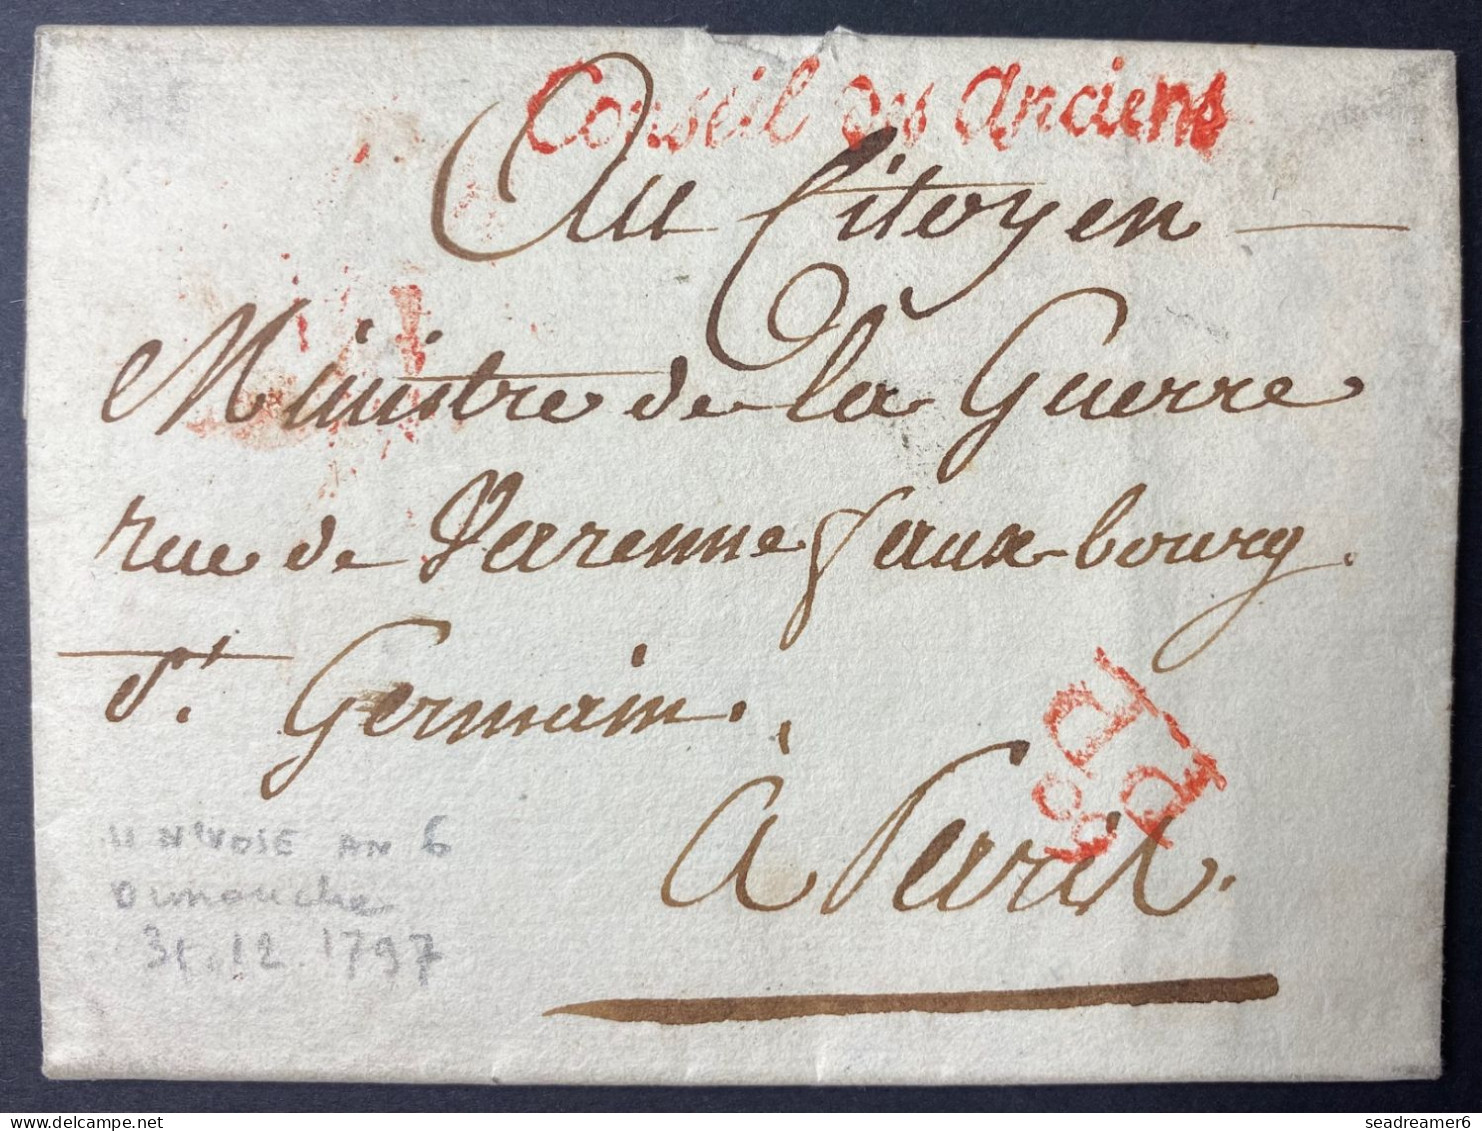 Conseil des Anciens
Au Citoyen
Ministre de la Guerre
rue de Varenne faux-bourg.
St. Germain.
à Paris.
11 NiVOSE AN 6
Dimanche
31.12.1797
seadreamer6
delcampe.net